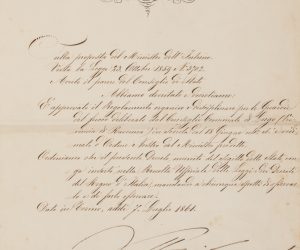 Sulla proposta del Ministro dell'Interno
Vista la Legge 23 Ottobre 1859 N° 3702
Avuto il parere del Consiglio di Stato
Abbiamo decretato e decretiamo
È approvato il Regolamento organico e disciplinare per le Guardie
del fuoco deliberato dal Consiglio Comunale di Lugo (Pro-
vincia di Ravenna) in seduta del 18 Giugno
d'Ordine
Ordiniamo che il presente Decreto munito del Sigillo dello Stato, ven-
ga inserto nella Raccolta Ufficiale delle Leggi e dei Decreti
del Regno d'Italia, mandando a chiunque spetti di osservar-
lo e di farlo osservare.
Dato in Torino, addì 7 Luglio 1861.